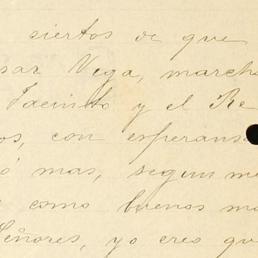 siertos de que
sar Vega, march
Jacinto y el Re
os, con esperans
ó mas, segun me
como buenos ma
Señores, yo creo qu